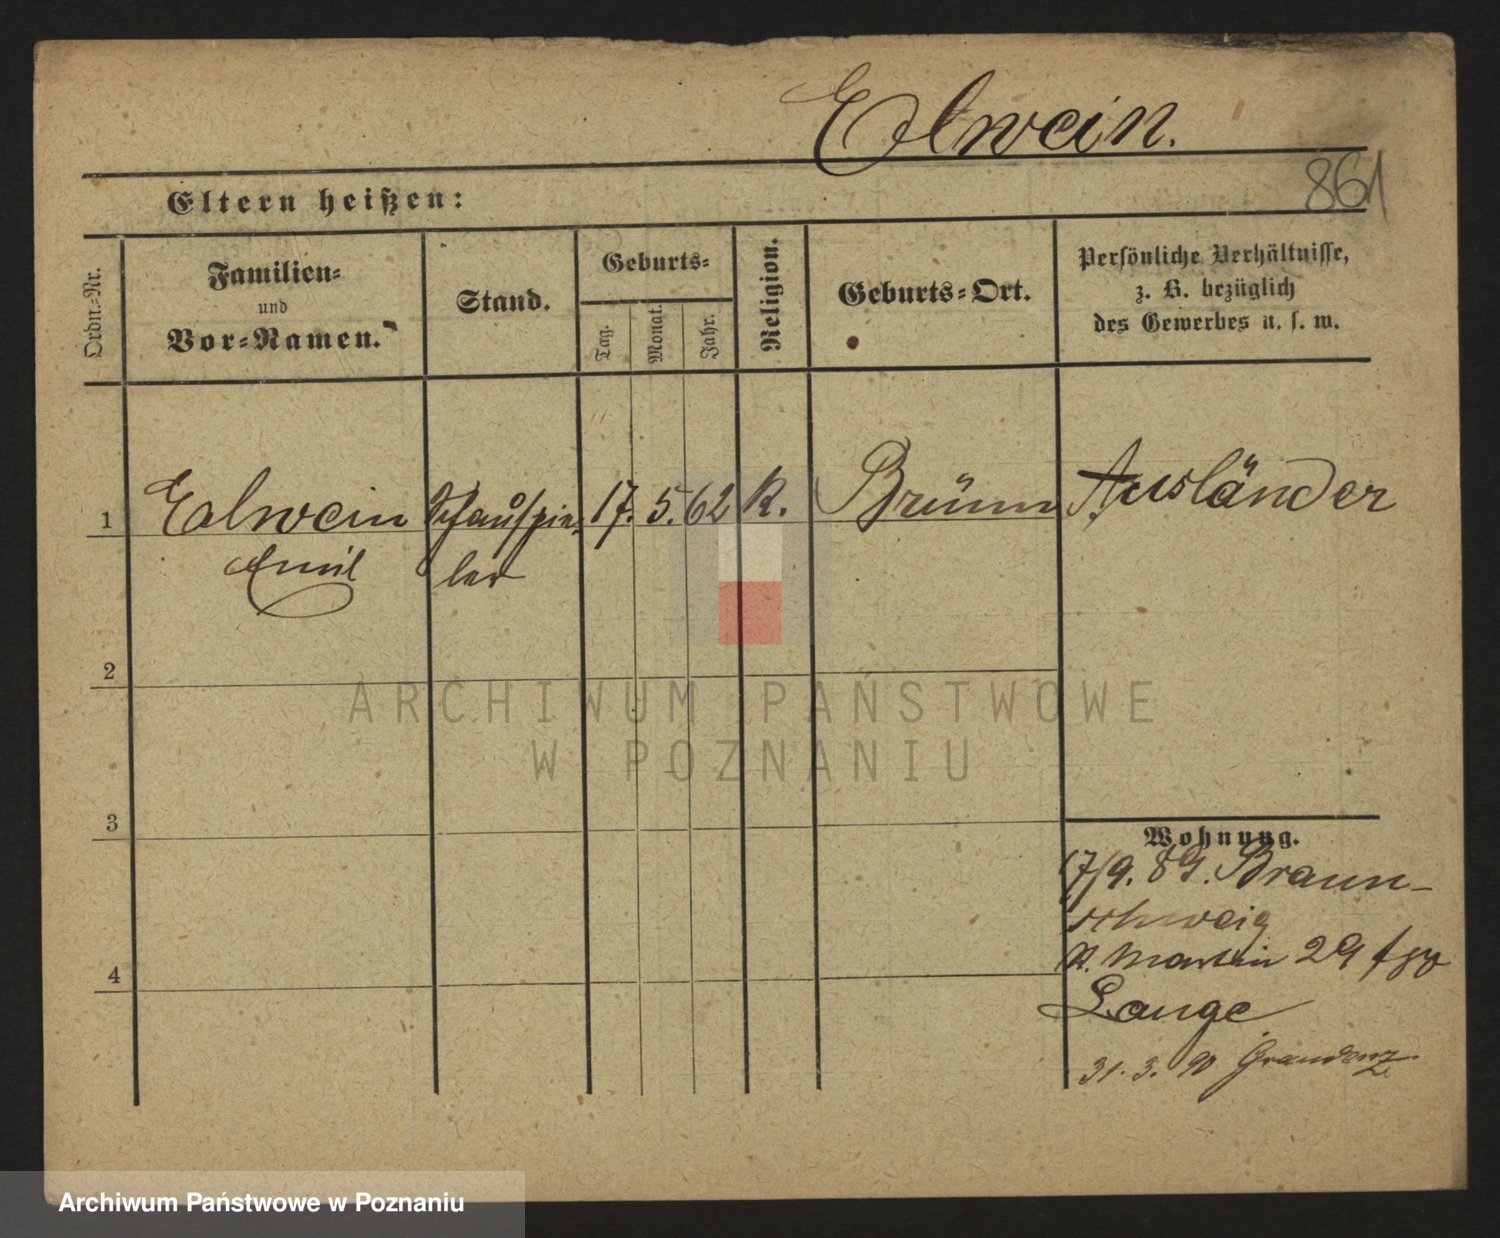 Edlwein.
861
Eltern heißen:
Ordn.-Nr.
Familien-
und
Vor-Namen.
Stand.
Geburts-
Tag.
Monat.
Jahr.
Religion.
Geburts-Ort.
Persönliche Verhältnisse,
z. B. bezüglich
des Gewerbes u. s. w.
1 Edlwein Schauspie- 17. 5. 62 K. Brünn Ausländer
Emil ler
2
ARCHIWUM PAŃSTWOWE
W POZNANIU
3
Wohnung.
17/9. 89. Braun-
schweig
St. Martin 29
4
Lange
31. 3. 90 Graudenz
Archiwum Państwowe w Poznaniu